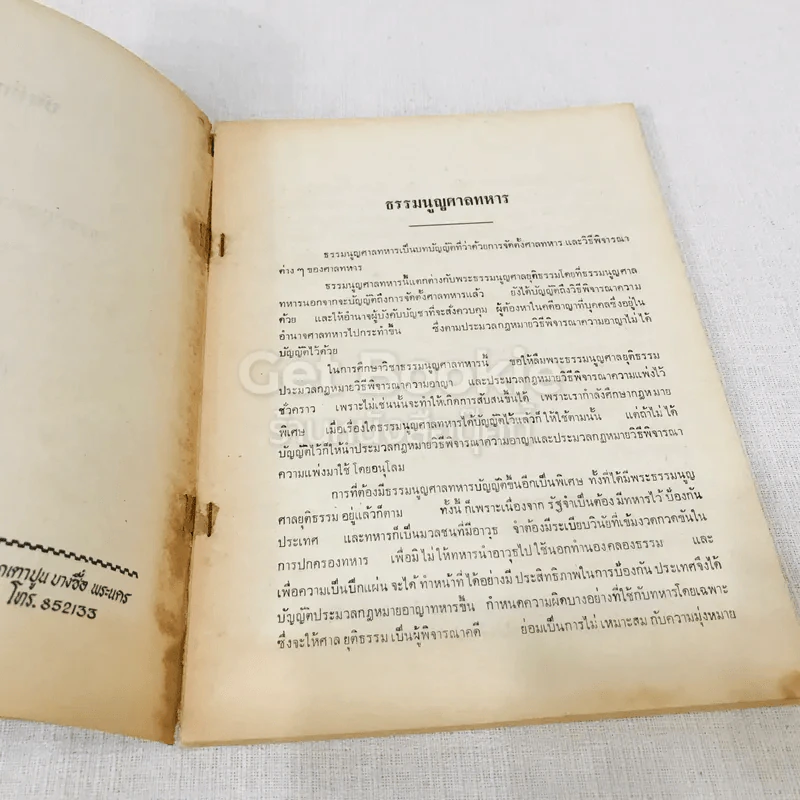 เตาปูน บางซื่อ พระนคร
โทร. 852133
ธรรมนูญศาลทหาร
ธรรมนูญศาลทหารเป็นบทบัญญัติที่ว่าด้วยการจัดตั้งศาลทหาร และวิธีพิจารณา
ต่าง ๆ ของศาลทหาร
ธรรมนูญศาลทหารนี้แตกต่างกับพระธรรมนูญศาลยุติธรรมโดยที่ธรรมนูญศาล
ทหารนอกจากจะบัญญัติถึงการจัดตั้งศาลทหารแล้ว ยังได้บัญญัติถึงวิธีพิจารณาความ
ด้วย และให้อำนาจผู้บังคับบัญชาที่จะสั่งควบคุม ผู้ต้องหาในคดีอาญาที่บุคคลซึ่งอยู่ใน
อำนาจศาลทหารไปกระทำขึ้น ซึ่งตามประมวลกฎหมายวิธีพิจารณาความอาญาไม่ได้
บัญญัติไว้ด้วย
ในการศึกษาวิชาธรรมนูญศาลทหารนี้ ขอให้ลืมพระธรรมนูญศาลยุติธรรม
ประมวลกฎหมายวิธีพิจารณาความอาญา และประมวลกฎหมายวิธีพิจารณาความแพ่งไว้
ชั่วคราว เพราะไม่เช่นนั้นจะทำให้เกิดการสับสนขึ้นได้ เพราะเรากำลังศึกษากฎหมาย
พิเศษ เมื่อเรื่องใดธรรมนูญศาลทหารได้บัญญัติไว้แล้วก็ให้ใช้ตามนั้น แต่ถ้าไม่ได้
บัญญัติไว้ก็ให้นำประมวลกฎหมายวิธีพิจารณาความอาญาและประมวลกฎหมายวิธีพิจารณา
ความแพ่งมาใช้ โดยอนุโลม
การที่ต้องมีธรรมนูญศาลทหารบัญญัติขึ้นอีกเป็นพิเศษ ทั้งที่ได้มีพระธรรมนูญ
ศาลยุติธรรม อยู่แล้วก็ตาม ทั้งนี้ ก็เพราะเนื่องจาก รัฐจำเป็นต้อง มีทหารไว้ ป้องกัน
ประเทศ และทหารก็เป็นมวลชนที่มีอาวุธ จำต้องมีระเบียบวินัยที่เข้มงวดกวดขันใน
การปกครองทหาร เพื่อมิ ให้ทหารนำอาวุธไป ใช้นอกทำนองคลองธรรม และ
เพื่อความเป็นปึกแผ่น จะได้ ทำหน้าที่ ได้อย่างมี ประสิทธิภาพในการป้องกัน ประเทศจึงได้
บัญญัติประมวลกฎหมายอาญาทหารขึ้น กำหนดความผิดบางอย่างที่ใช้กับทหารโดยเฉพาะ
ซึ่งจะให้ศาล ยุติธรรม เป็นผู้พิจารณาคดี ย่อมเป็นการไม่ เหมาะสม กับความมุ่งหมาย
Get Bookie